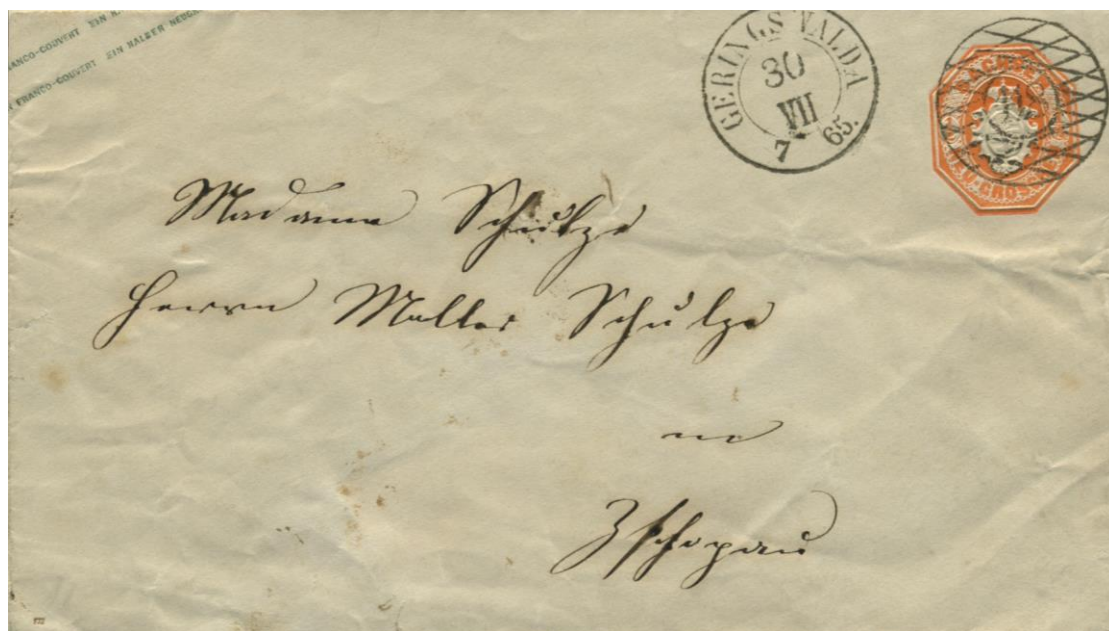 FRANCO-COUVERT EIN HALBER NEUGR
FRANCO-COUVERT EIN HALBER NEUGR
GERINGSWALDA
30
VII
7 65.
SACHSEN
Madame Schulze
Herrn Müller Schulze
in
Zschopau